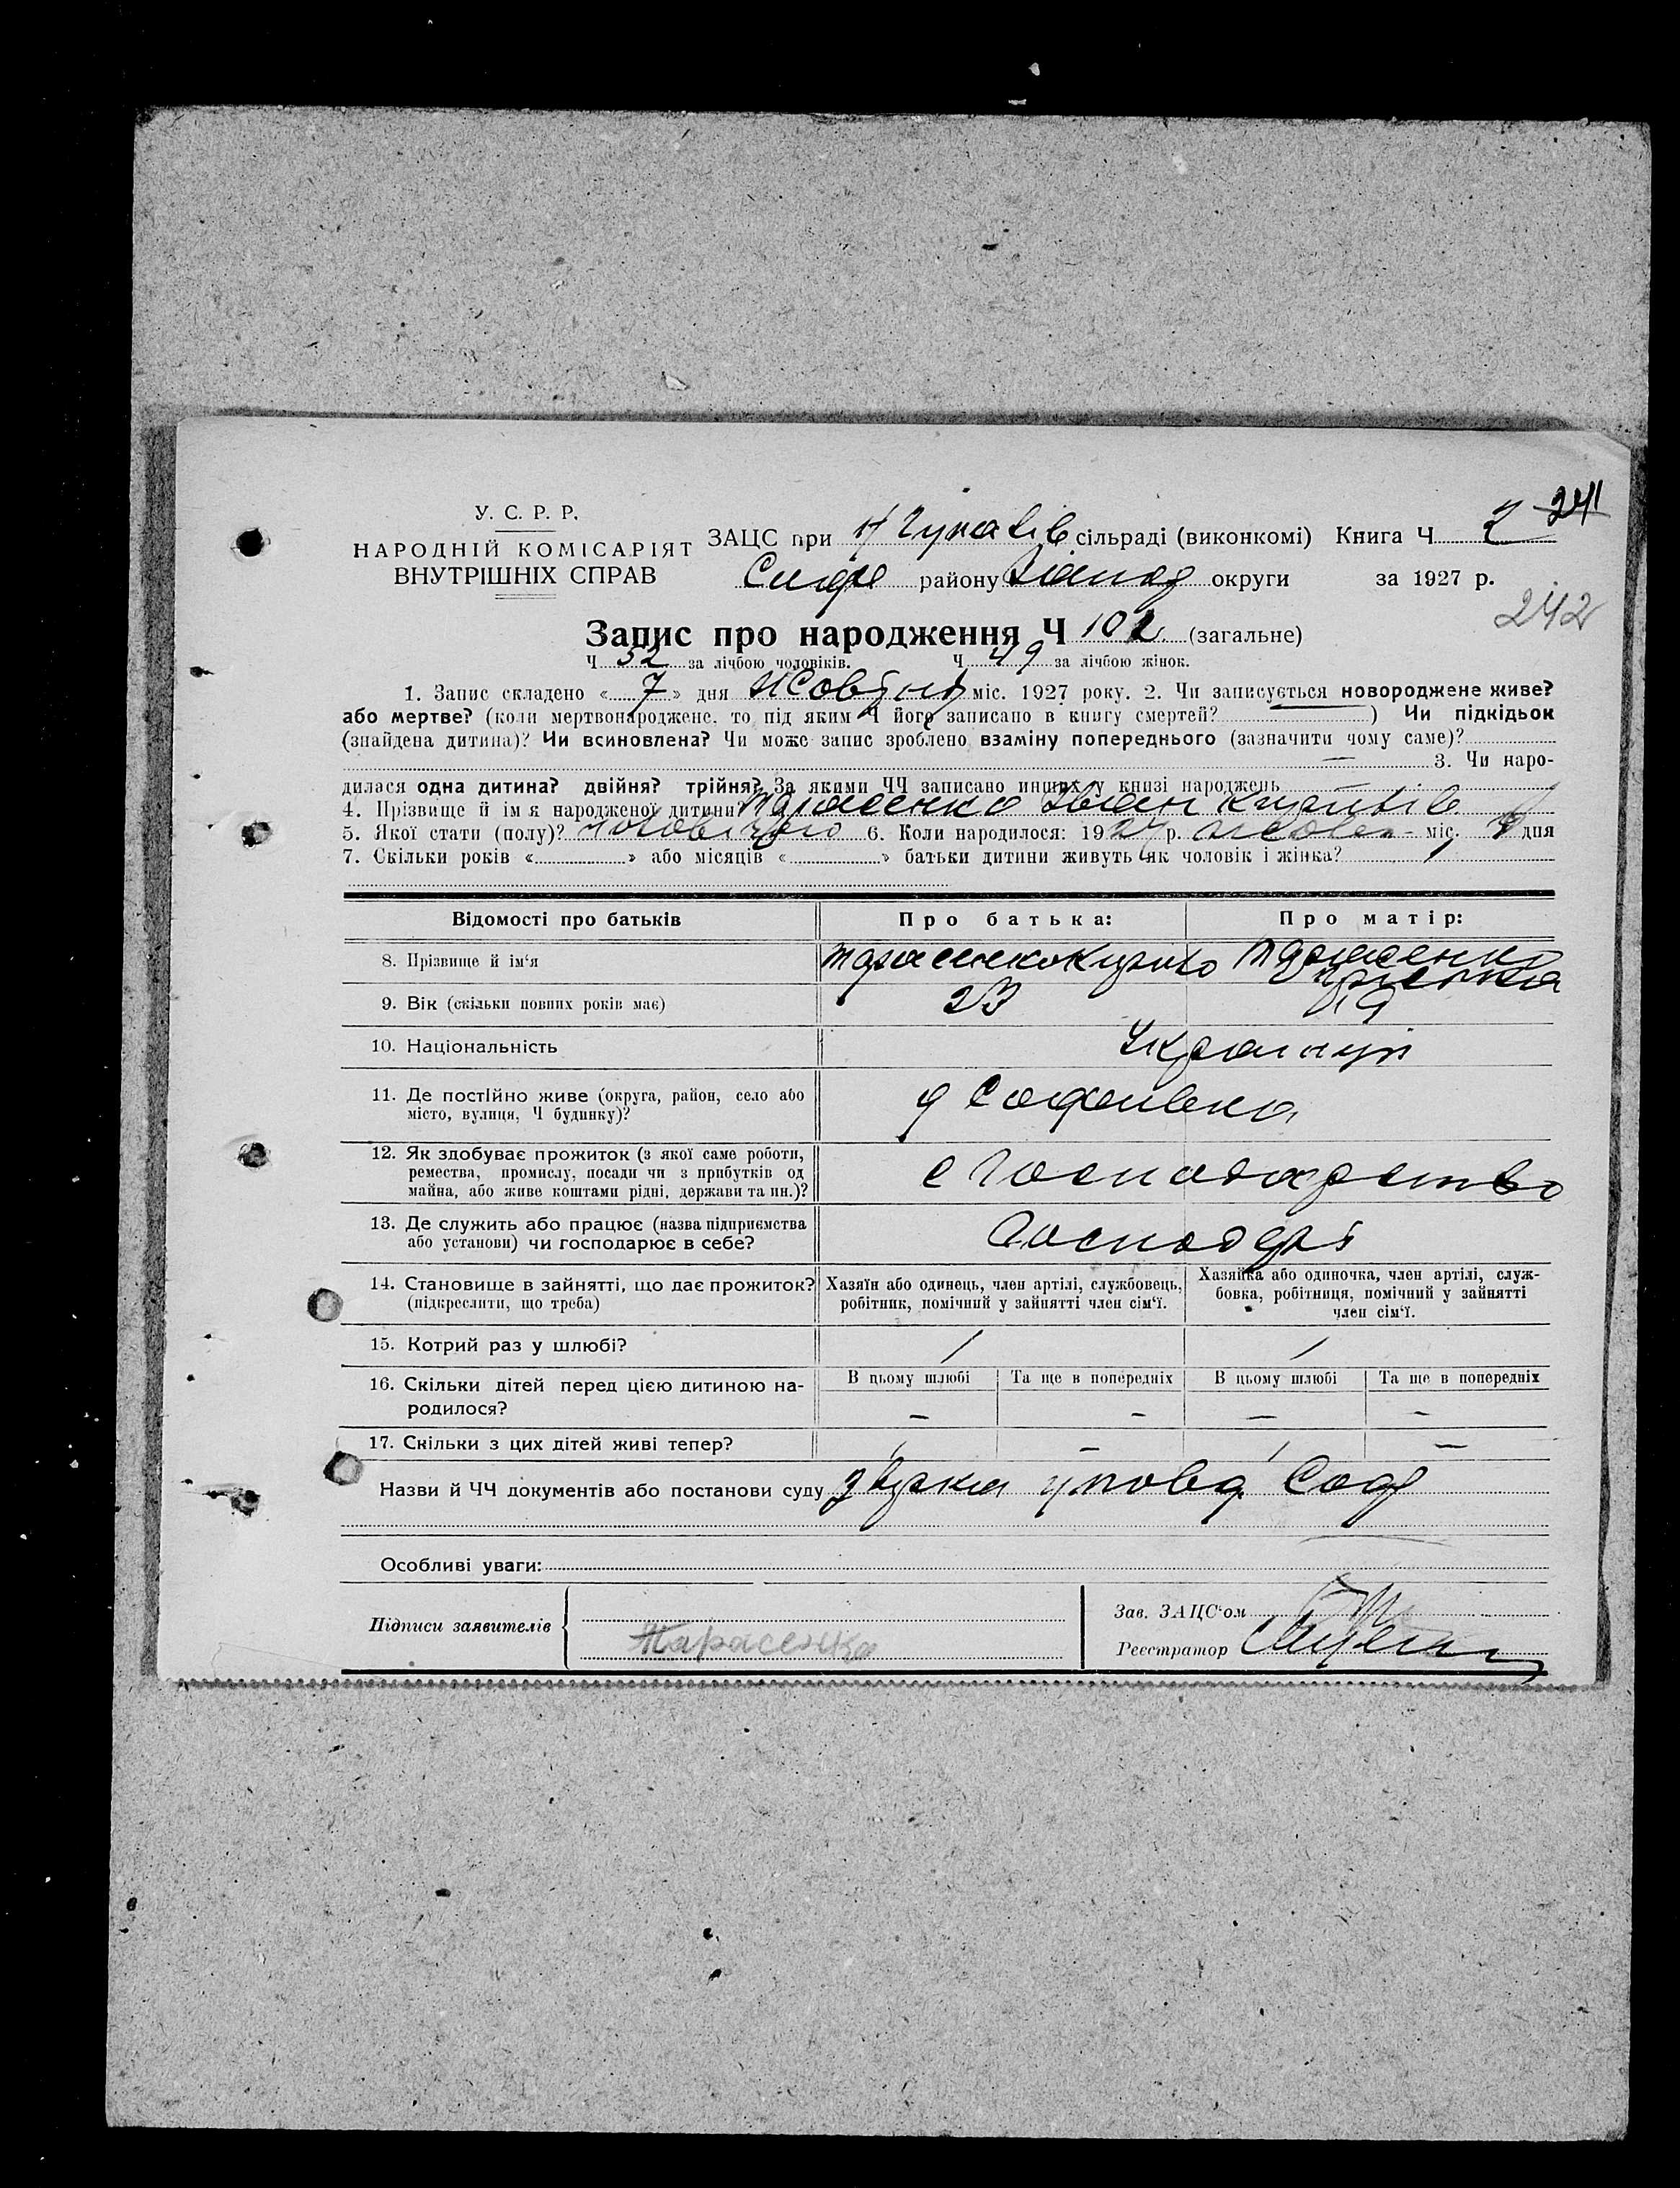 241
У. С. Р. Р.
НАРОДНІЙ КОМІСАРІЯТ
ВНУТРІШНІХ СПРАВ
ЗАЦС при сільраді (виконкомі) Книга Ч 2
району округи за 1927 р.
242
Запис про народження Ч 101 (загальне)
Ч 52 за лічбою чоловіків. Ч 49 за лічбою жінок.
1. Запис складено « 7 » дня Жовтня міс. 1927 року. 2. Чи записується новороджене живе?
або мертве? (коли мертвонароджене, то під яким Ч його записано в книгу смертей? ) Чи підкідьок
(знайдена дитина)? Чи всиновлена? Чи може запис зроблено взаміну попереднього (зазначити чому саме)?
— 3. Чи наро-
дилася одна дитина? двійня? трійня? За якими ЧЧ записано инших у книзі народжень
4. Прізвище й ім'я народженої дитини? Тарасенко Іван
5. Якої стати (полу)? 6. Коли народилося: 1927 р. міс. дня
7. Скільки років « » або місяців « » батьки дитини живуть як чоловік і жінка? 1
Відомості про батьків Про батька: Про матір:
8. Прізвище й ім'я Тарасенко Тарасенко
9. Вік (скільки повних років має) 23 19
10. Національність
11. Де постійно живе (округа, район, село або
місто, вулиця, Ч будинку)? Софиевка
12. Як здобуває прожиток (з якої саме роботи,
ремества, промислу, посади чи з прибутків од
майна, або живе коштами рідні, держави та ин.)? с господарство
13. Де служить або працює (назва підприємства
або установи) чи господарює в себе? господарі
14. Становище в зайнятті, що дає прожиток?
(підкреслити, що треба)
Хазяїн або одинець, член артілі, службовець,
робітник, помічний у зайнятті член сім'ї.
Хазяйка або одиночка, член артілі, служ-
бовка, робітниця, помічний у зайнятті
член сім'ї.
15. Котрий раз у шлюбі? 1 1
16. Скільки дітей перед цією дитиною на-
родилося?
В цьому шлюбі Та ще в попередніх В цьому шлюбі Та ще в попередніх
— — — —
17. Скільки з цих дітей живі тепер? 1 — 1 —
Назви й ЧЧ документів або постанови суду
Особливі уваги:
Підписи заявителів Тарасенко
Зав. ЗАЦС'ом
Реєстратор